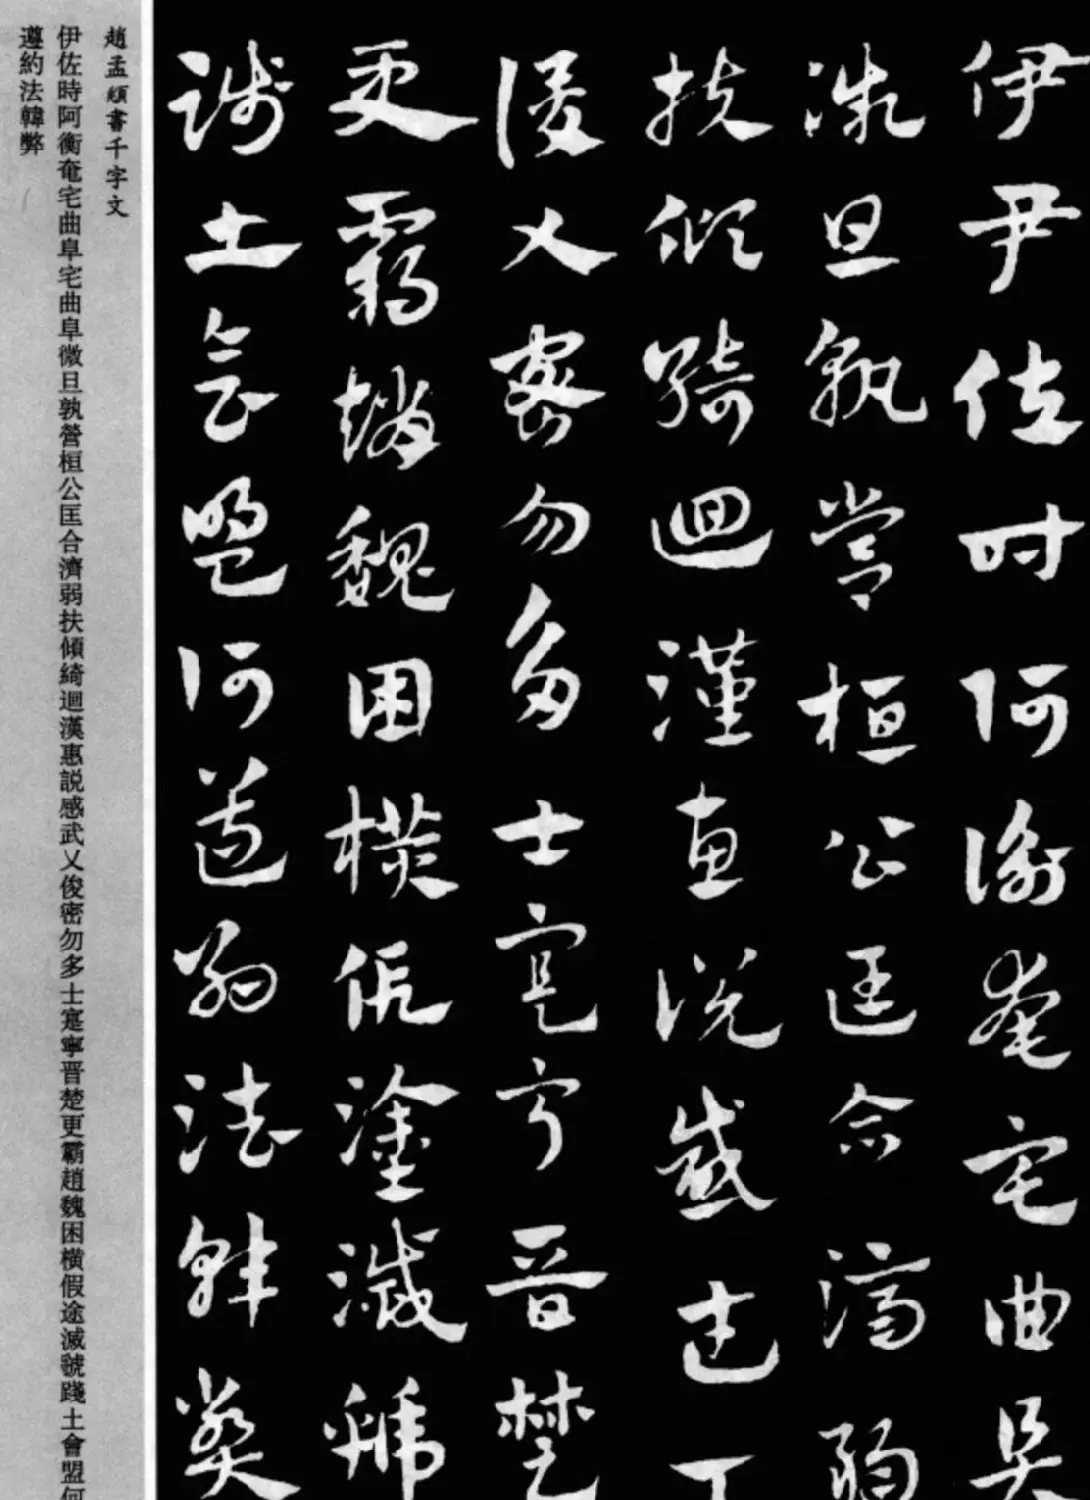 伊尹佐時阿衡奄宅曲阜
微旦孰營桓公匡合濟弱
扶傾綺迴漢惠說感武丁
俊乂密勿多士寔寧晉楚
更霸趙魏困橫假途滅虢
踐土會盟何遵約法韓弊
趙孟頫書千字文
伊佐時阿衡奄宅曲阜宅曲阜微旦孰營桓公匡合濟弱扶傾綺迴漢惠説感武乂俊密勿多士寔寧晉楚更霸趙魏困橫假途滅虢踐土會盟何
遵約法韓弊